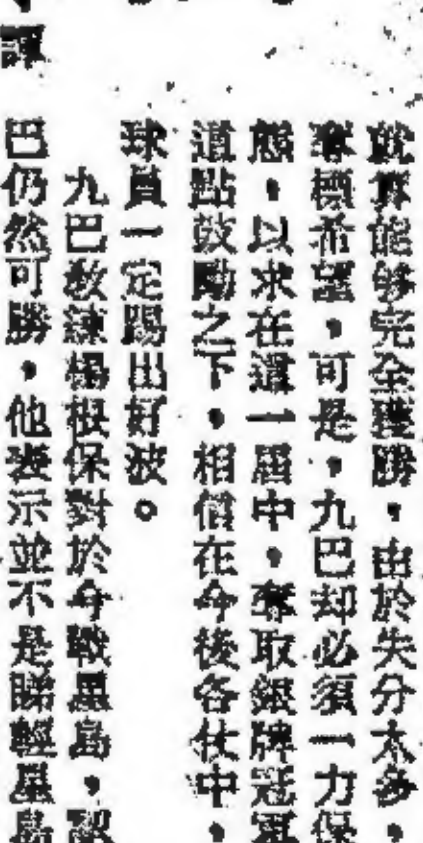 就算能够完全獲勝，由於失分太多，
奪標希望，可是，九巴却必須一力保
態，以求在這一屆中，奪取銀牌冠軍
道點鼓勵之下，相信在今後各仗中，
球員一定踢出好波。
九巴教練楊根保對於今戰星島，認
巴仍然可勝，他表示並不是睇輕星島
譚